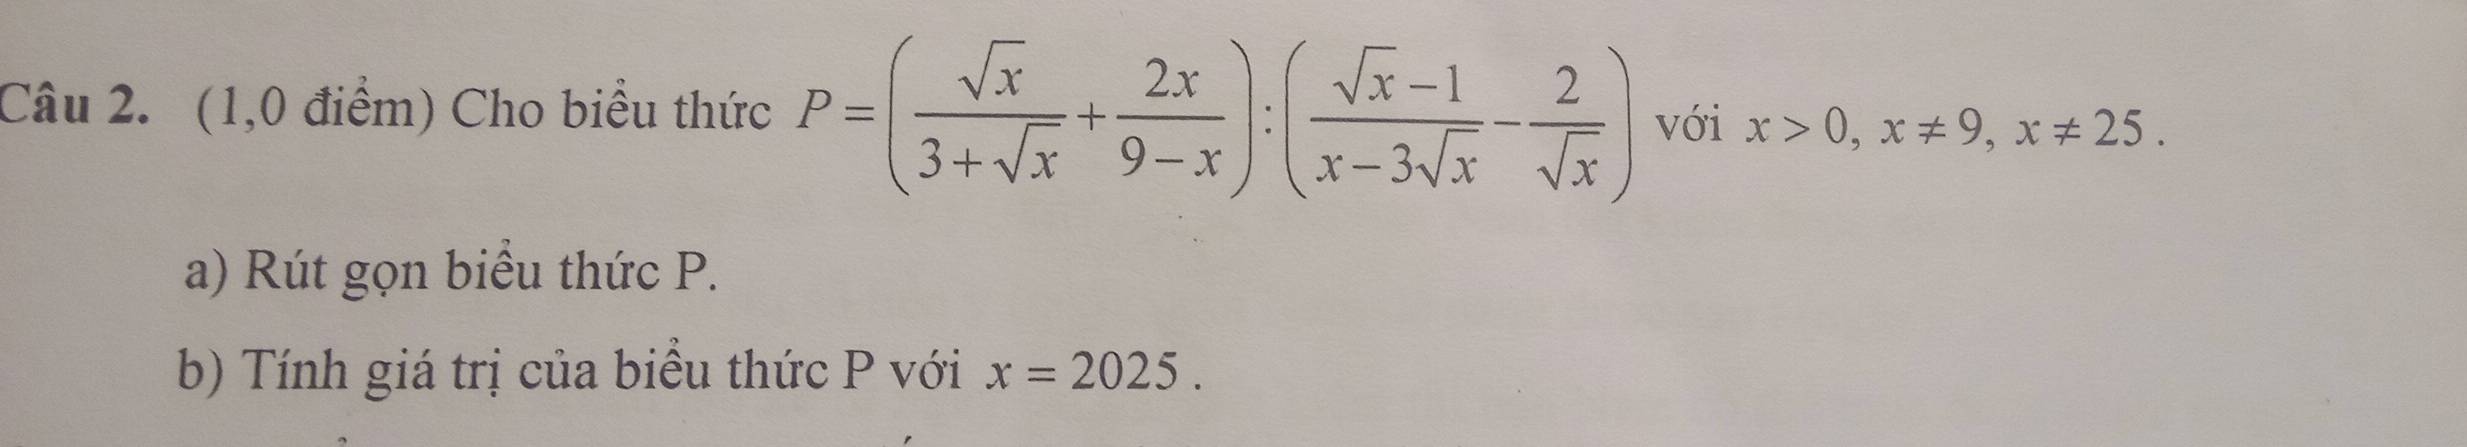 Câu 2. (1,0 điểm) Cho biểu thức $P = \left( \frac{\sqrt{x}}{3+\sqrt{x}} + \frac{2x}{9-x} \right) : \left( \frac{\sqrt{x}-1}{x-3\sqrt{x}} - \frac{2}{\sqrt{x}} \right)$ với $x > 0, x \neq 9, x \neq 25$.
a) Rút gọn biểu thức P.
b) Tính giá trị của biểu thức P với $x = 2025$.